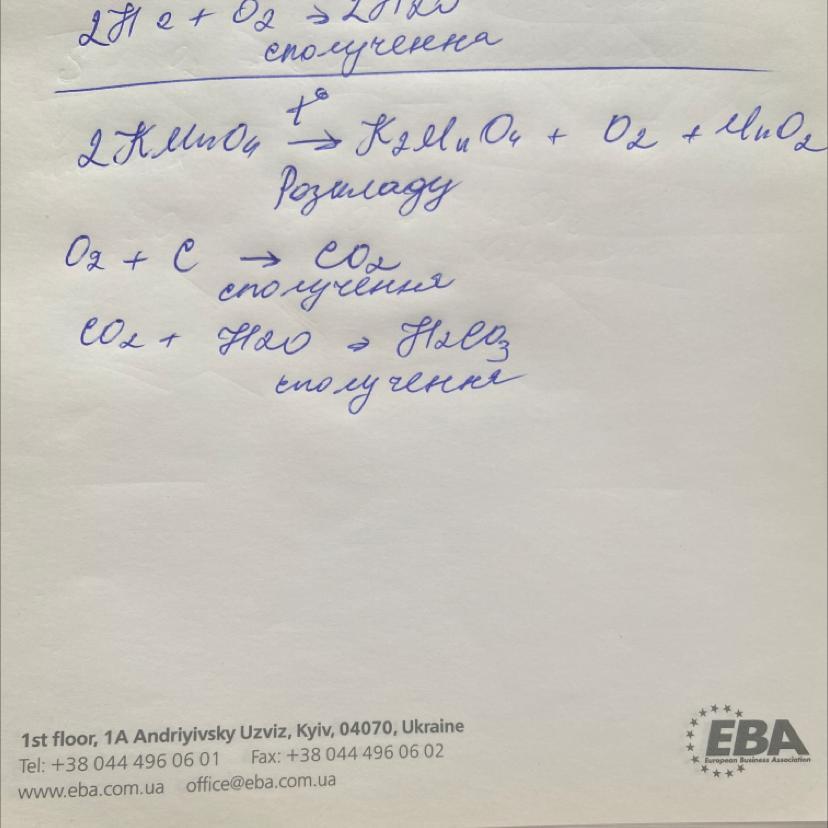 2H2 + O2 → 2H2O
сполучення
t°
2KMnO4 → K2MnO4 + O2 + MnO2
Розкладу
O2 + C → CO2
сполучення
CO2 + H2O → H2CO3
сполучення
1st floor, 1A Andriyivsky Uzviz, Kyiv, 04070, Ukraine
Tel: +38 044 496 06 01 Fax: +38 044 496 06 02
www.eba.com.ua office@eba.com.ua
EBA
European Business Association